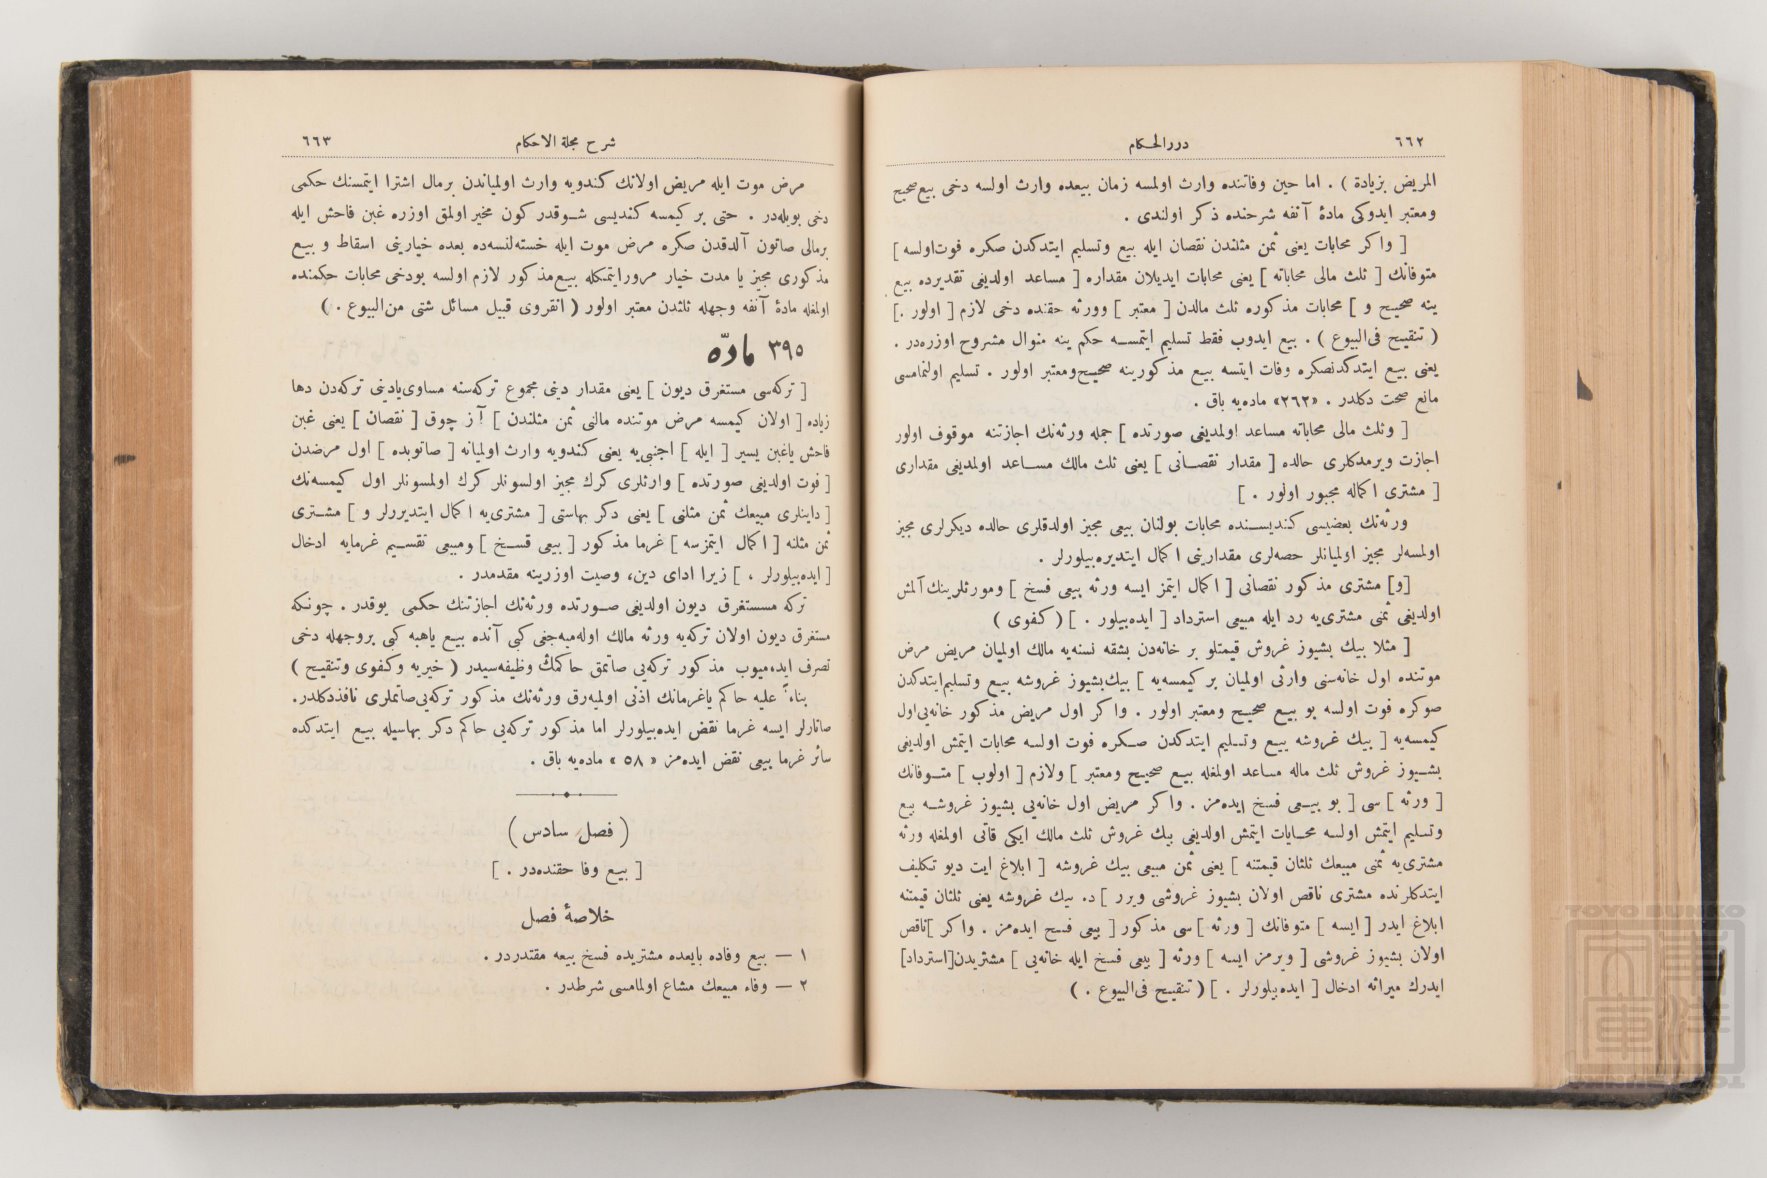 ٦٦٢
دررالحكام
المريض بزيادة ) . اما حين وفاتنده وارث اولمسه زمان بيعده وارث اولسه دخى بيع صحيح
ومعتبر ايدوكى مادهٔ آنفه شرحنده ذكر اولندى .
[ واكر محابات يعنى ثمن مثلندن نقصان ايله بيع وتسليم ايتدكدن صكره فوت اولسه ]
متوفانك [ ثلث مالى محاباته ] يعنى محابات ايديلان مقداره [ مساعد اولديغى تقديرده بيع
ينه صحيح و ] محابات مذكوره ثلث مالدن [ معتبر ] وورثه حقنده دخى لازم [ اولور . ]
( تنقيح فى البيوع ) . بيع ايدوب فقط تسليم ايتمسه حكم ينه منوال مشروح اوزره‌در .
يعنى بيع ايتدكدنصكره وفات ايتسه بيع مذكورينه صحيح ومعتبر اولور . تسليم اولنمامسى
مانع صحت دكلدر . «٢٦٢» ماده‌يه باق .
[ وثلث مالى محاباته مساعد اولمديغى صورتده ] جمله ورثه‌نك اجازتنه موقوف اولور
اجازت ويرمدكلرى حالده [ مقدار نقصانى ] يعنى ثلث مالك مساعد اولمديغى مقدارى
[ مشترى اكماله مجبور اولور . ]
ورثه‌نك بعضيسى كنديسنده محابات بولنان بيعى مجيز اولدقلرى حالده ديكرلرى مجيز
اولمسه‌لر مجيز اولميانلر حصه‌لرى مقدارينى اكمال ايتديره‌بيلورلر .
[و] مشترى مذكور نقصانى [ اكمال ايتمز ايسه ورثه بيعى فسخ ] ومورثلرينك آلمش
اولديغى ثمنى مشترى‌يه رد ايله مبيعى استرداد [ ايده‌بيلور . ] ( كفوى )
[ مثلا بيك بشيوز غروش قيمتلو بر خانه‌دن بشقه نسنه‌يه مالك اولميان مريض مرض
موتنده اول خانه‌سنى وارثى اولميان بر كيمسه‌يه ] بيك بشيوز غروشه بيع وتسليم ايتدكدن
صوكره فوت اولسه بو بيع صحيح ومعتبر اولور . واكر اول مريض مذكور خانه‌يى اول
كيمسه‌يه [ بيك غروشه بيع وتسليم ايتدكدن صكره فوت اولسه محابات ايتمش اولديغى
بشيوز غروش ثلث ماله مساعد اولمغله بيع صحيح ومعتبر ] ولازم [ اولوب ] متوفانك
[ ورثه ] سى [ بو بيعى فسخ ايده‌مز . واكر مريض اول خانه‌يى بشيوز غروشه بيع
وتسليم ايتمش اولسه محابات ايتمش اولديغى بيك غروش ثلث مالك ايكى قاتى اولمغله ورثه
مشترى‌يه ثمنى مبيعك ثلثان قيمتنه ] يعنى ثمن مبيعى بيك غروشه [ ابلاغ ايت ديو تكليف
ايتدكلرنده مشترى ناقص اولان بشيوز غروشى ويرر ] ده بيك غروشه يعنى ثلثان قيمتنه
ابلاغ ايدر [ ايسه ] متوفانك [ ورثه ] سى مذكور [ بيعى فسخ ايده‌مز . واكر ] ناقص
اولان بشيوز غروشى [ ويرمز ايسه ] ورثه [ بيعى فسخ ايله خانه‌يى ] مشتريدن [استرداد]
ايدرك ميراثه ادخال [ ايده‌بيلورلر . ] ( تنقيح فى البيوع . )
شرح مجلة الاحكام
٦٦٣
مرض موت ايله مريض اولانك كندويه وارث اولمياندن برمال اشترا ايتمسنك حكمى
دخى بويله‌در . حتى بر كيمسه كنديسى شوقدر كون مخير اولمق اوزره غبن فاحش ايله
برمالى صاتون آلدقدن صكره مرض موت ايله خسته‌لنسه‌ده بعده خيارينى اسقاط و بيع
مذكورى مجيز يا مدت خيار مرورايتمكله بيع مذكور لازم اولسه بودخى محابات حكمنده
اولمغله مادهٔ آنفه وجهله ثلثدن معتبر اولور ( انقروى قبيل مسائل شتى من البيوع . )
٣٩٥ مادّه
[ تركه‌سى مستغرق ديون ] يعنى مقدار دينى مجموع تركه‌سنه مساوى‌يادينى تركه‌دن دها
زياده [ اولان كيمسه مرض موتنده مالنى ثمن مثلندن ] آز چوق [ نقصان ] يعنى غبن
فاحش ياغبن يسير [ ايله ] اجنبى‌يه يعنى كندويه وارث اولميانه [ صاتوبده ] اول مرضدن
[ فوت اولديغى صورتده ] وارثلرى كرك مجيز اولسونلر كرك اولمسونلر اول كيمسه‌نك
[ داينلرى مبيعك ثمن مثلنى ] يعنى دكر بهاسنى [ مشترى‌يه اكمال ايتديررلر و ] مشترى
ثمن مثلنه [ اكمال ايتمزسه ] غرما مذكور [ بيعى فسخ ] ومبيعى تقسيم غرمايه ادخال
[ ايده‌بيلورلر . ] زيرا اداى دين، وصيت اوزرينه مقدمدر .
تركه مستغرق ديون اولديغى صورتده ورثه‌نك اجازتنك حكمى يوقدر . چونكه
مستغرق ديون اولان تركه‌يه ورثه مالك اوله‌ميه‌جغى كبى آنده بيع ياهبه كبى بروجهله دخى
تصرف ايده‌ميوب مذكور تركه‌يى صاتمق حاكمك وظيفه‌سيدر ( خيريه وكفوى وتنقيح )
بناءً عليه حاكم ياغرمانك اذنى اولميه‌رق ورثه‌نك مذكور تركه‌يى صاتملرى نافذدكلدر.
صاتارلر ايسه غرما نقض ايده‌بيلورلر اما مذكور تركه‌يى حاكم دكر بهاسيله بيع ايتدكده
سائر غرما بيعى نقض ايده‌مز « ٥٨ » ماده‌يه باق .
( فصل سادس )
[ بيع وفا حقنده‌در . ]
خلاصهٔ فصل
١ — بيع وفاده بايعده مشتريده فسخ بيعه مقتدردر .
٢ — وفاء مبيعك مشاع اولمامسى شرطدر .
TOYO BUNKO